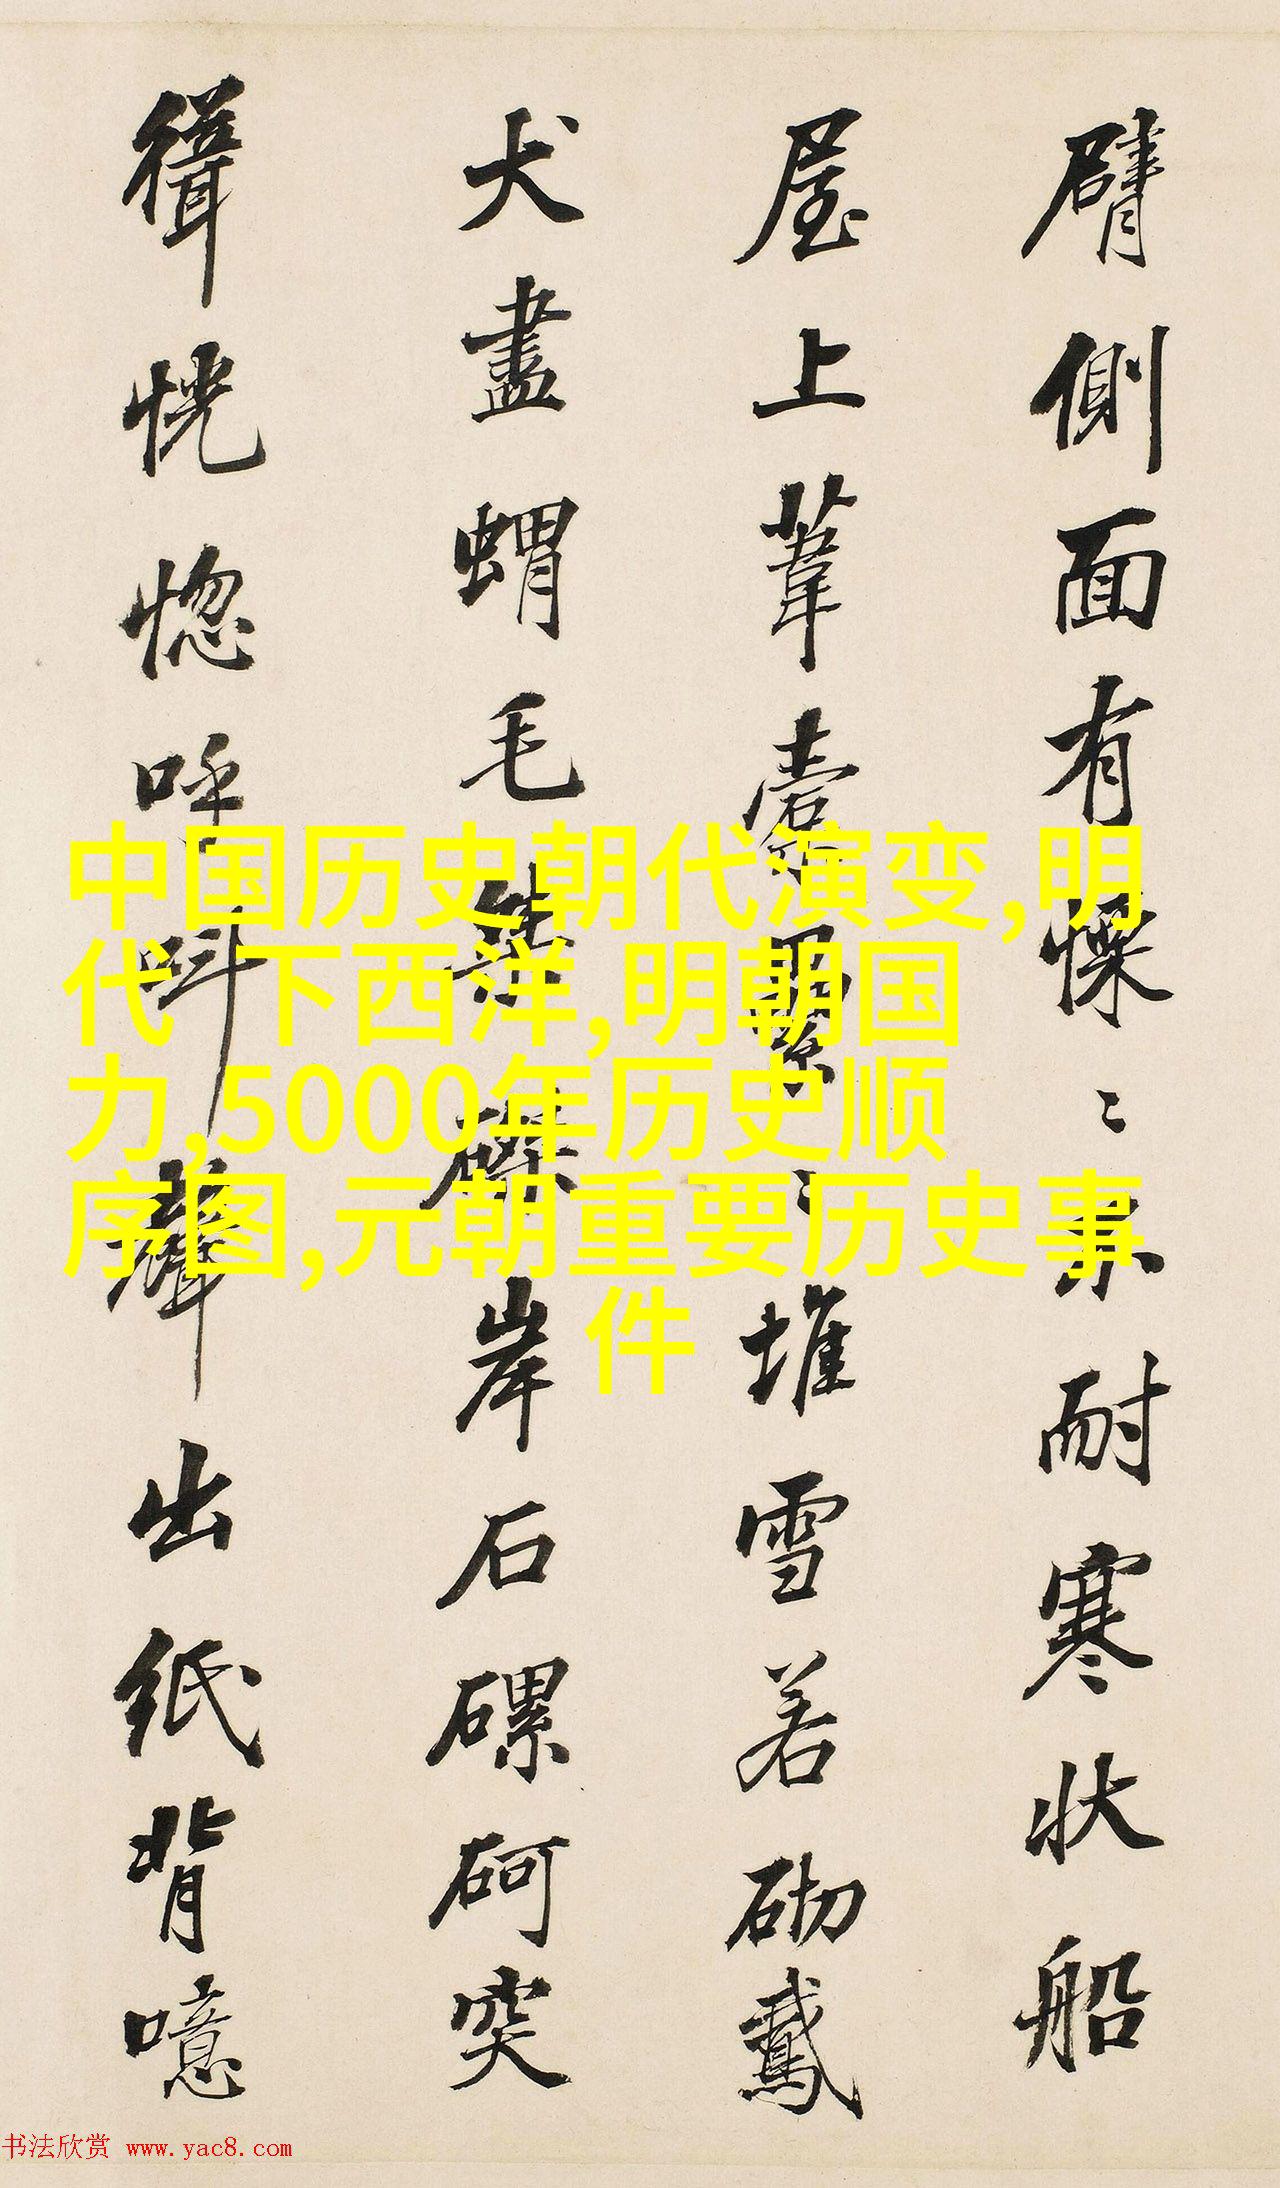 臂側面有慄〻示耐寒状船
屋上葦橐纍〻堆雪若砌鳶
犬盡蝟毛磔岸石磥砢突
緝恍惚呼叫聲出紙背噫
中国历史朝代演变,明
代 下西洋,明朝国
力,5000年历史顺
序图,元朝重要历史事
件
书法欣赏 www.yac8.com